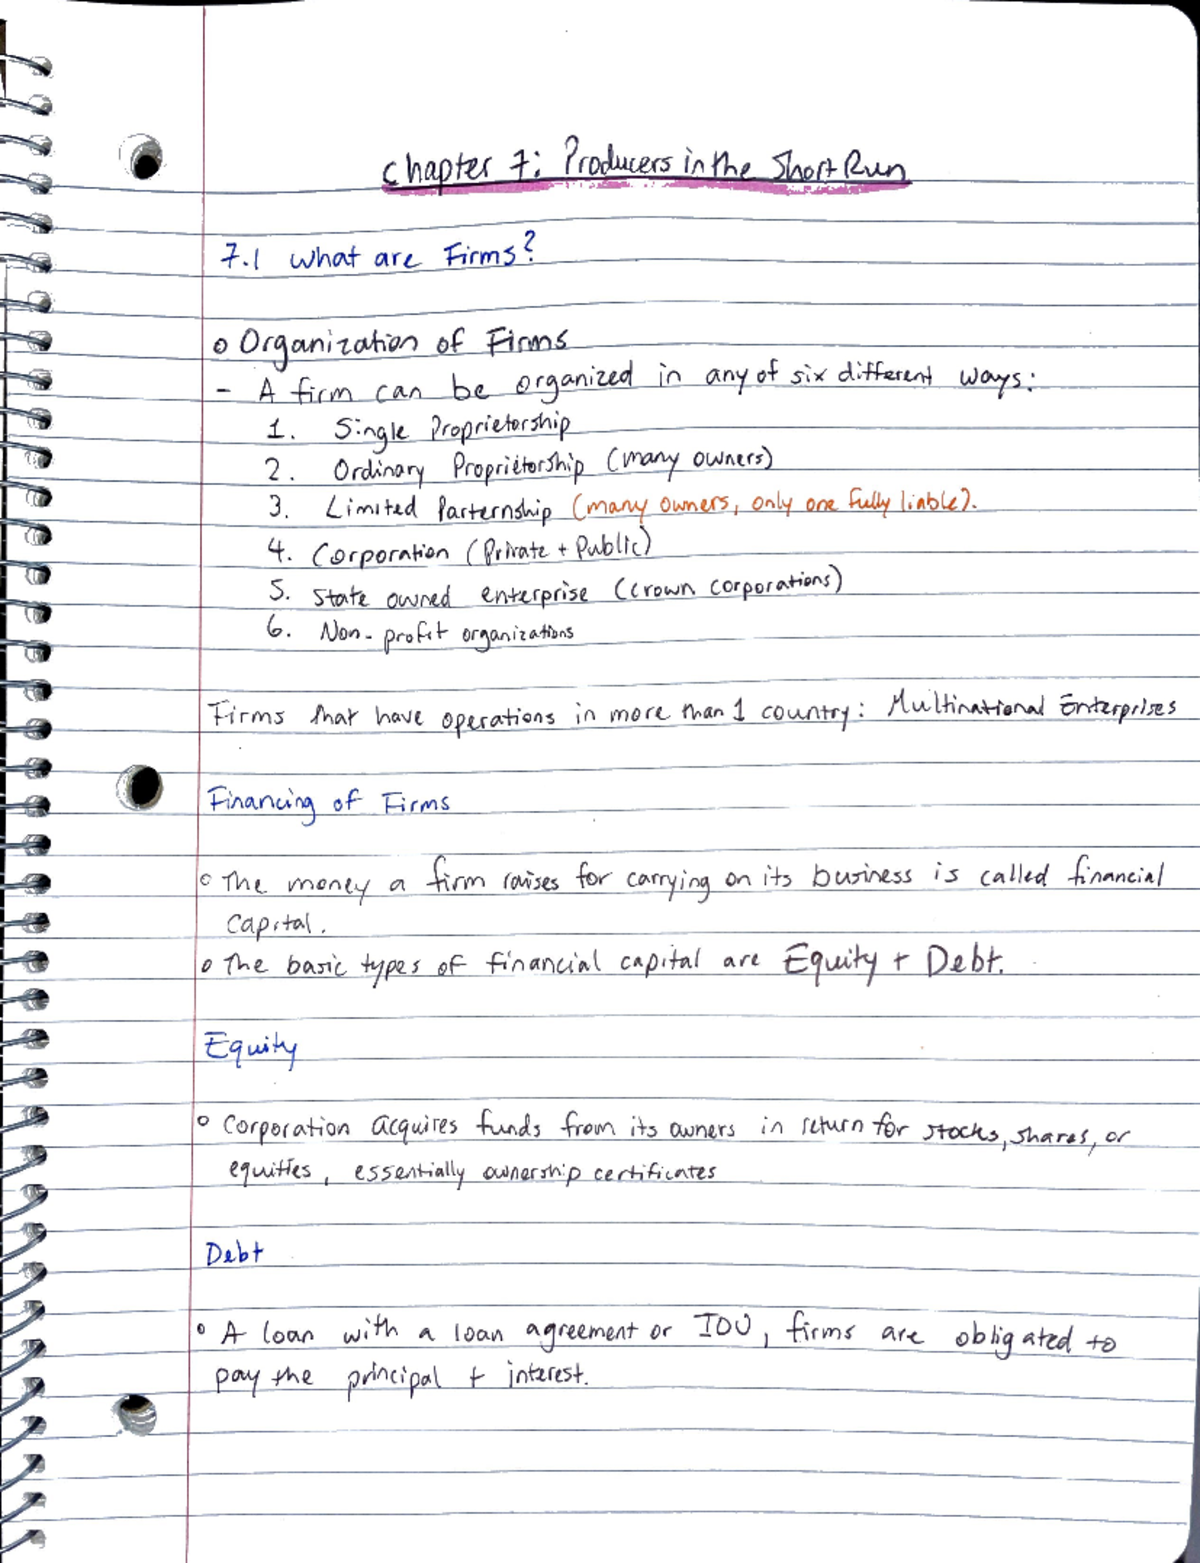 Chapter 7: Producers in the Short Run
7.1 What are Firms?
o Organization of Firms
- A firm can be organized in any of six different ways:
1. Single Proprietorship
2. Ordinary Proprietorship (many owners)
3. Limited Parternship (many owners, only one fully liable).
4. Corporation (Private + Public)
5. State owned enterprise (crown corporations)
6. Non-profit organizations
Firms that have operations in more than 1 country: Multinational Enterprises
Financing of Firms
o The money a firm raises for carrying on its business is called financial
capital.
o The basic types of financial capital are Equity + Debt.
Equity
o Corporation acquires funds from its owners in return for stocks, shares, or
equities, essentially ownership certificates
Debt
o A loan with a loan agreement or IOU, firms are obligated to
pay the principal + interest.